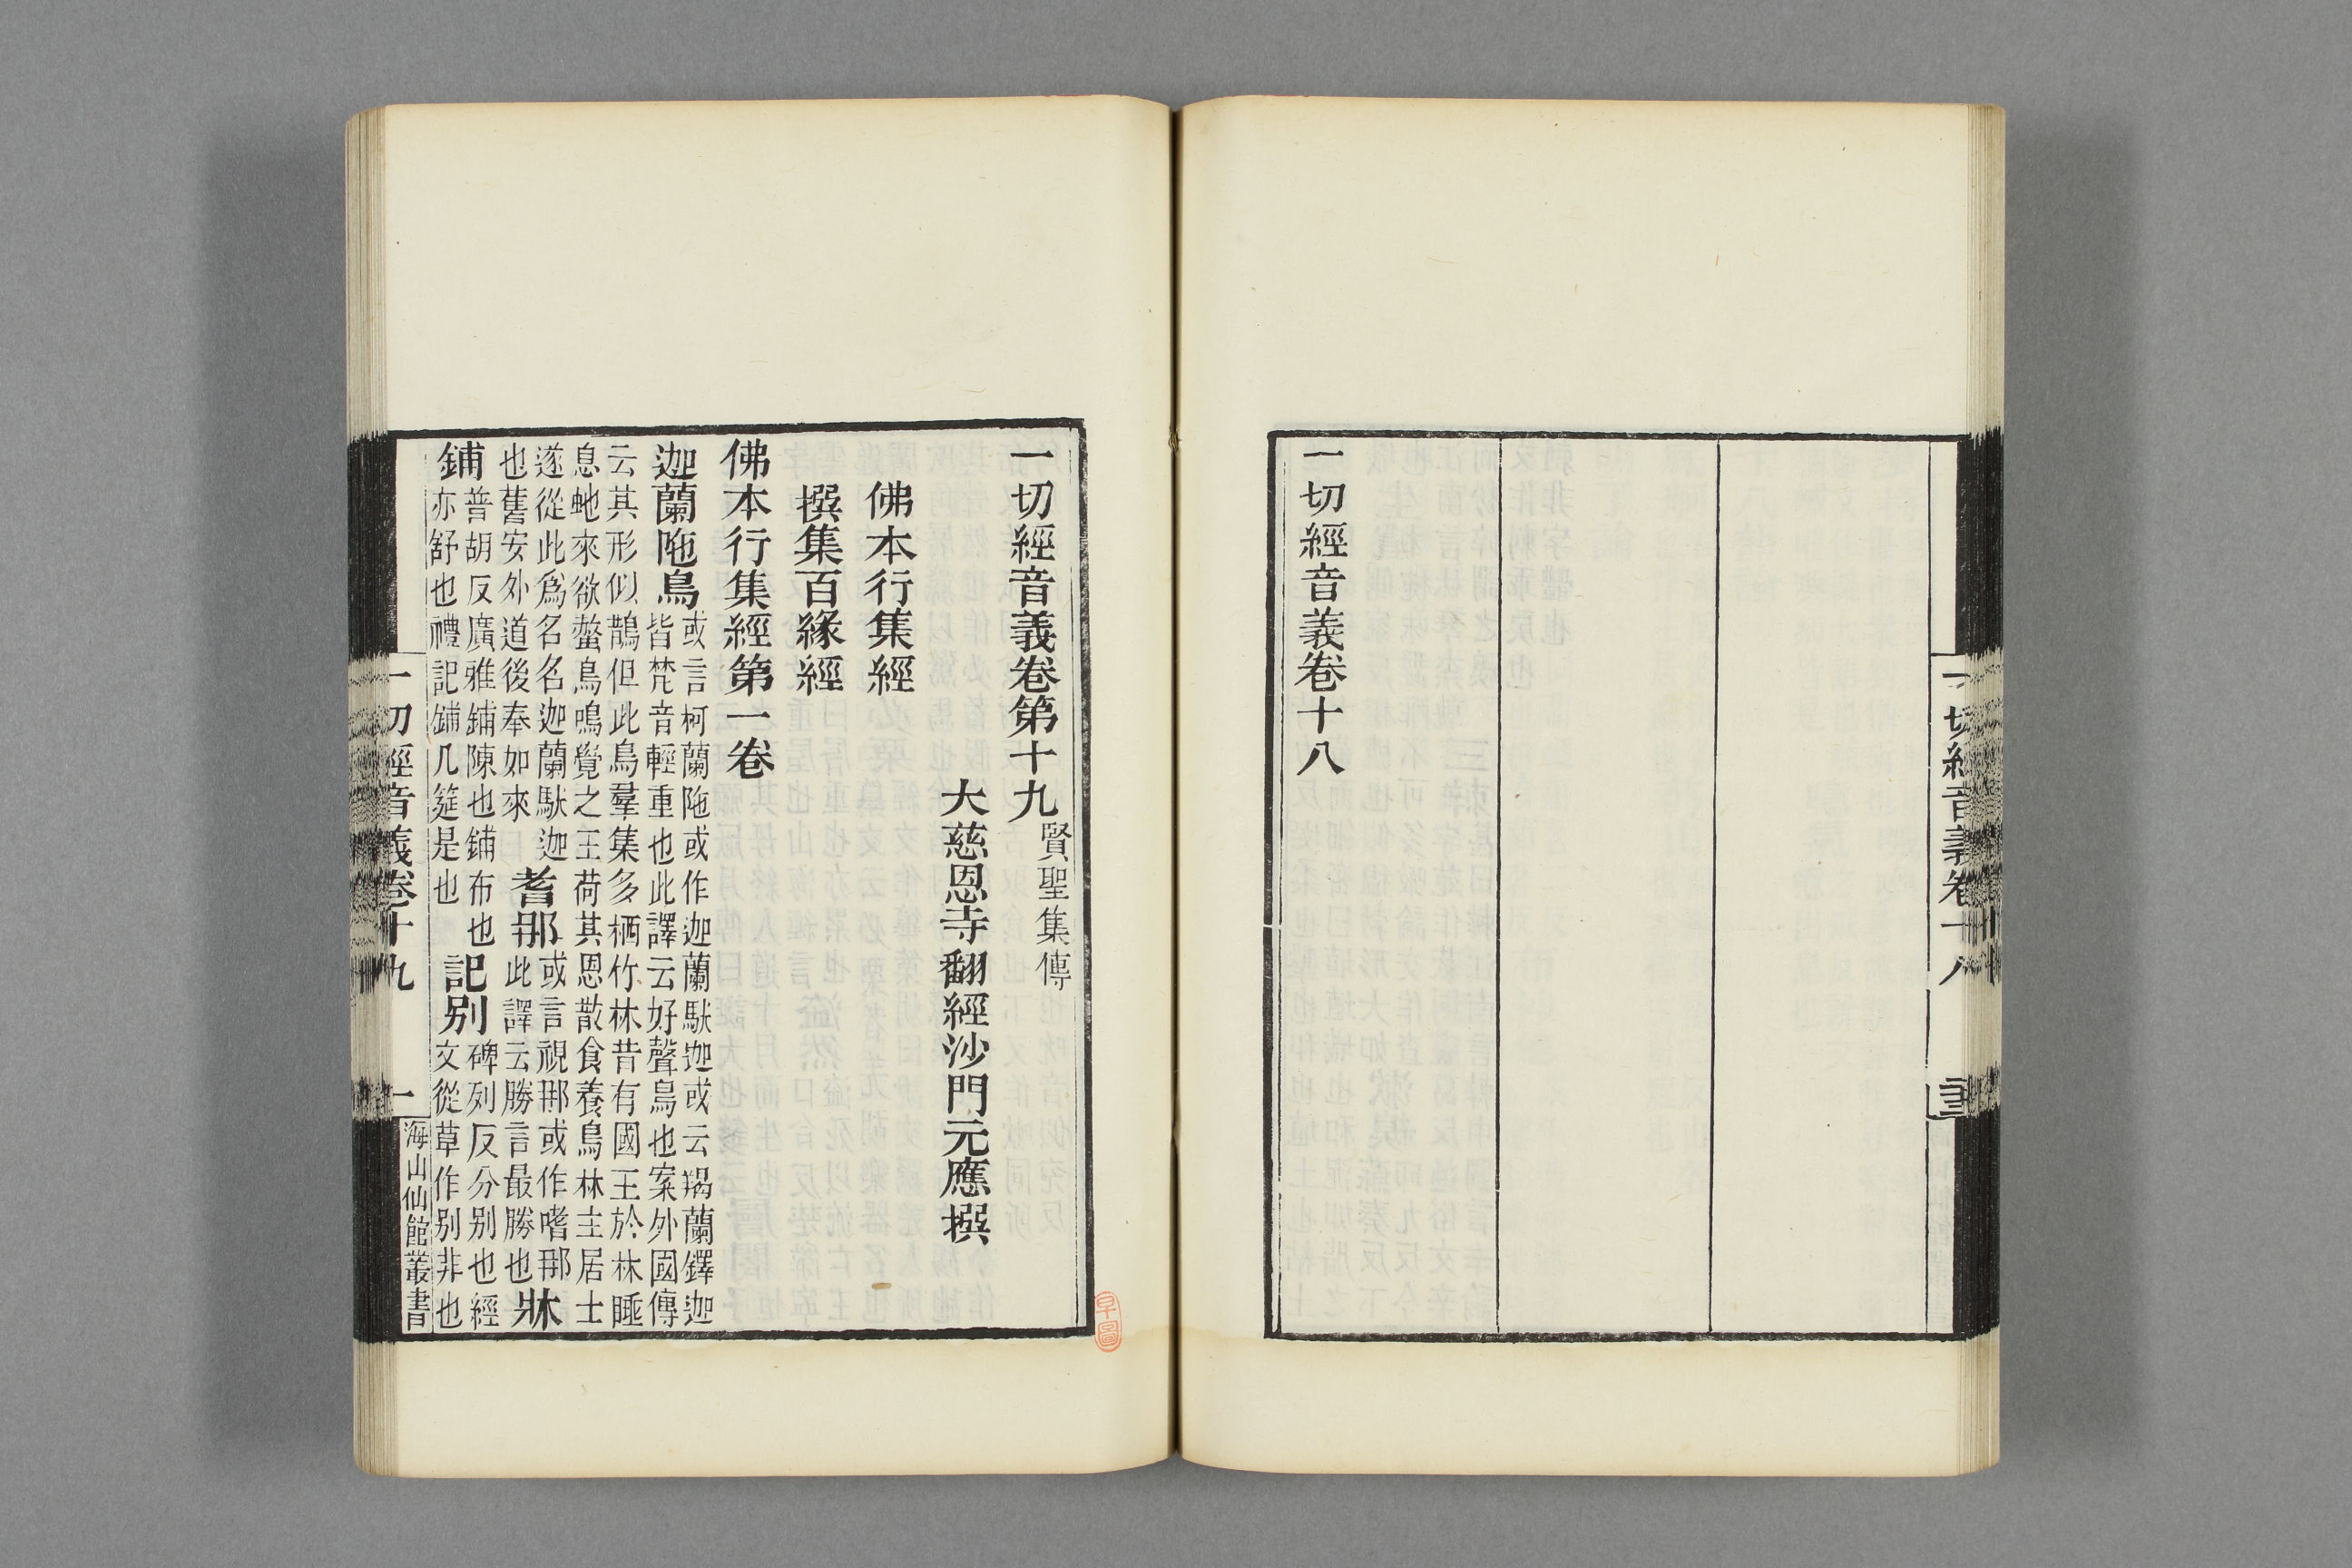 一切經音義卷十八
一切經音義卷十八
一切經音義卷第十九賢聖集傳
大慈恩寺翻經沙門元應撰
佛本行集經
撰集百緣經
佛本行集經第一卷
迦蘭陁鳥或言柯蘭陁或作迦蘭馱迦或云羯蘭鐸迦
皆梵音輕重也此譯云好聲鳥也案外國傳
云其形似鵲但此鳥羣集多栖竹林昔有國王於林睡
息虵來欲螫鳥鳴覺之王荷其恩散食養鳥林主居士
遂從此爲名名迦蘭馱迦
也舊安外道後奉如來
耆那或言視那或作嗜那
此譯云勝言最勝也
牀
鋪普胡反廣雅鋪陳也鋪布也
亦舒也禮記鋪几筵是也
記别碑列反分别也經
文從草作别非也
一切經音義卷十九
一
海山仙館叢書
早圖